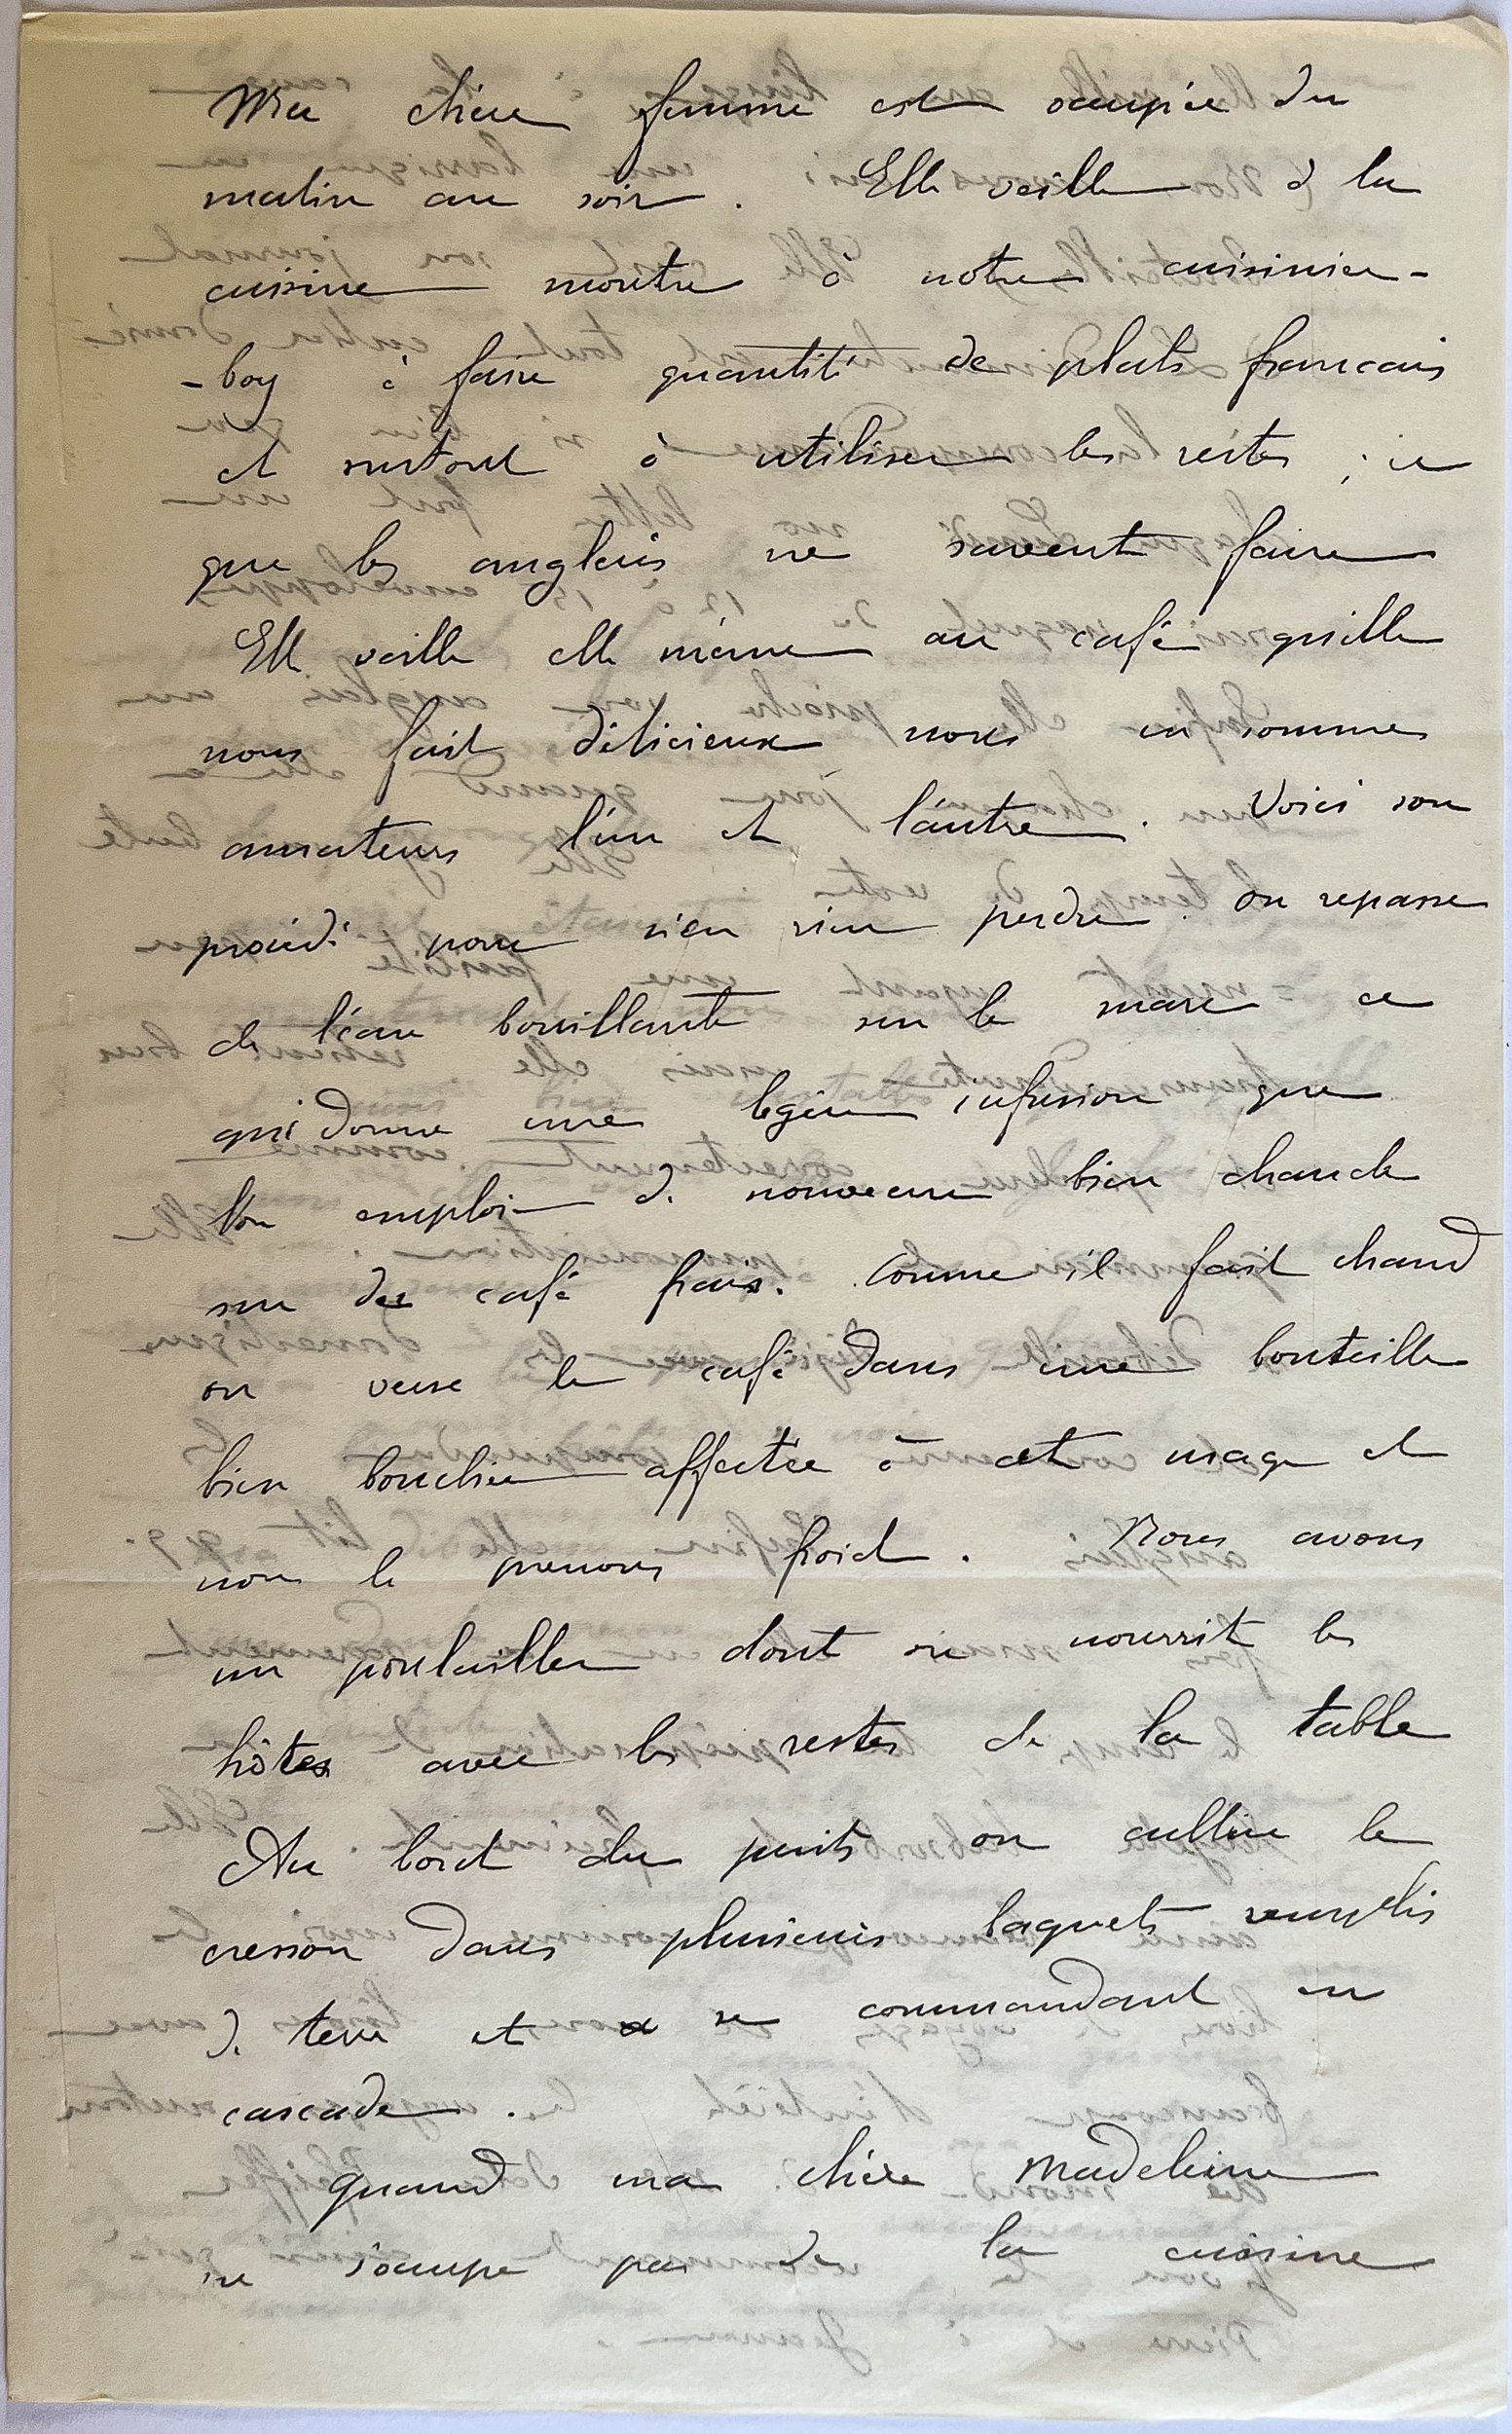 Ma chère femme est occupée du
matin au soir. Elle veille à la
cuisine montre à notre cuisinier-
-boy à faire quantité de plats francais
et surtout à utiliser les restes ; ce
que les anglais ne savent faire
Elle veille elle même au café qu'elle
nous fait délicieux nous en sommes
amateurs l'un et l'autre. Voici son
procédé pour n'en rien perdre. On repasse
de l'eau bouillante sur le marc ce
qui donne une legère infusion que
l'on emploie de nouveau bien chaude
sur du café frais. Comme il fait chaud
on verse le café dans une bouteille
bien bouchée affectée à cet usage et
nous le prenons froid. Nous avons
un poulailler dont on nourrit les
hôtes avec les restes de la table
Au bord du puits on cultive le
cresson dans plusieurs baquets remplis
de terre et se commandant en
cascade.
quand ma chère Madeleine
ne s'occupe pas de la cuisine